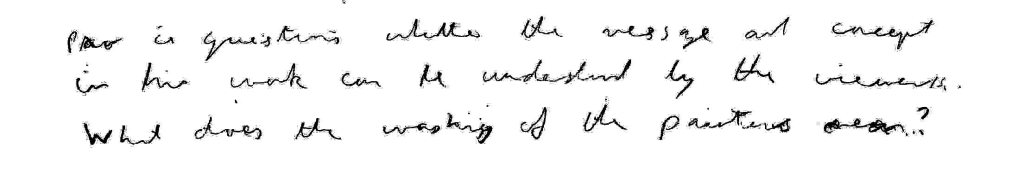 is questions whether the message and concept
in his work can be understood by the viewers.
What does the washing of the paintings mean?